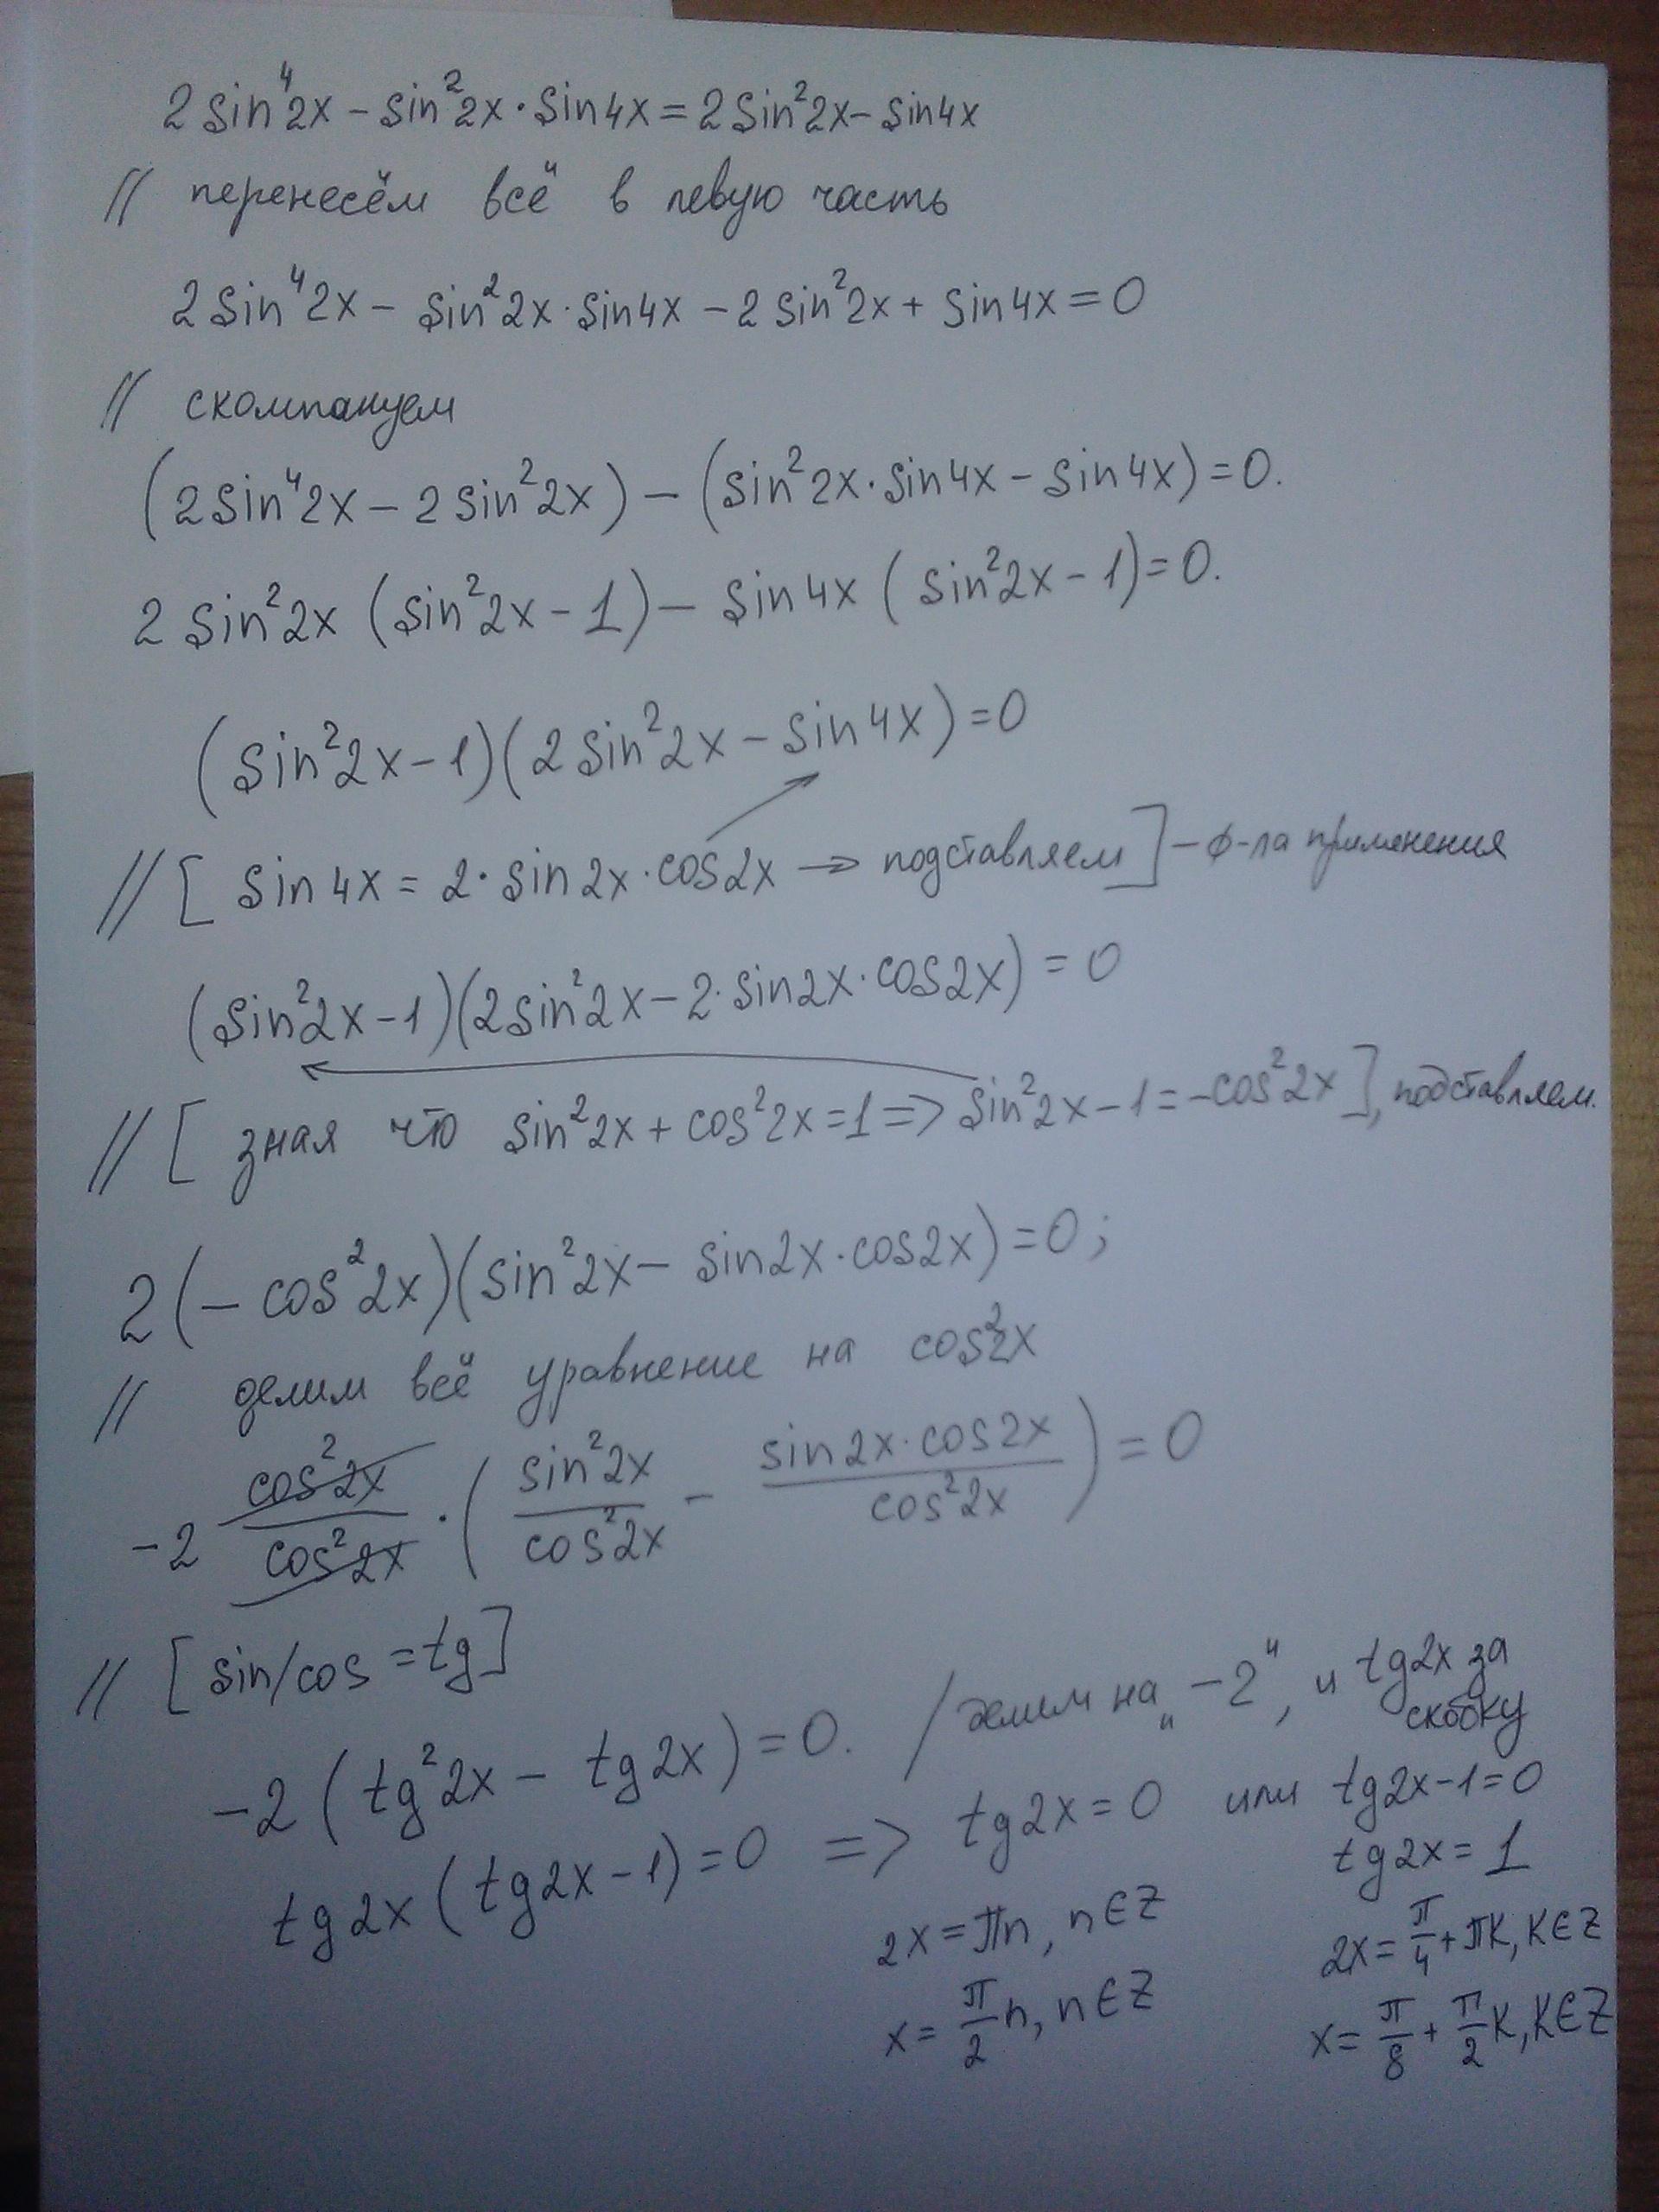 2sin⁴2x - sin²2x·sin4x = 2sin²2x - sin4x
// перенесём всё в левую часть
2sin⁴2x - sin²2x·sin4x - 2sin²2x + sin4x = 0
// скомпануем
(2sin⁴2x - 2sin²2x) - (sin²2x·sin4x - sin4x) = 0.
2sin²2x (sin²2x - 1) - sin4x (sin²2x - 1) = 0.
(sin²2x - 1)(2sin²2x - sin4x) = 0
// [sin4x = 2·sin2x·cos2x → подставляем] - ф-ла применения
(sin²2x - 1)(2sin²2x - 2·sin2x·cos2x) = 0
// [зная что sin²2x + cos²2x = 1 => sin²2x - 1 = -cos²2x], подставляем.
2(-cos²2x)(sin²2x - sin2x·cos2x) = 0;
// делим всё уравнение на cos²2x
-2 cos²2x/cos²2x · (sin²2x/cos²2x - sin2x·cos2x/cos²2x) = 0
// [sin/cos = tg]
-2(tg²2x - tg2x) = 0. / делим на "-2", и tg2x за скобку
tg2x(tg2x - 1) = 0 => tg2x = 0 или tg2x - 1 = 0
tg2x = 1
2x = πn, n∈Z 2x = π/4 + πk, k∈Z
x = π/2 n, n∈Z x = π/8 + π/2 k, k∈Z